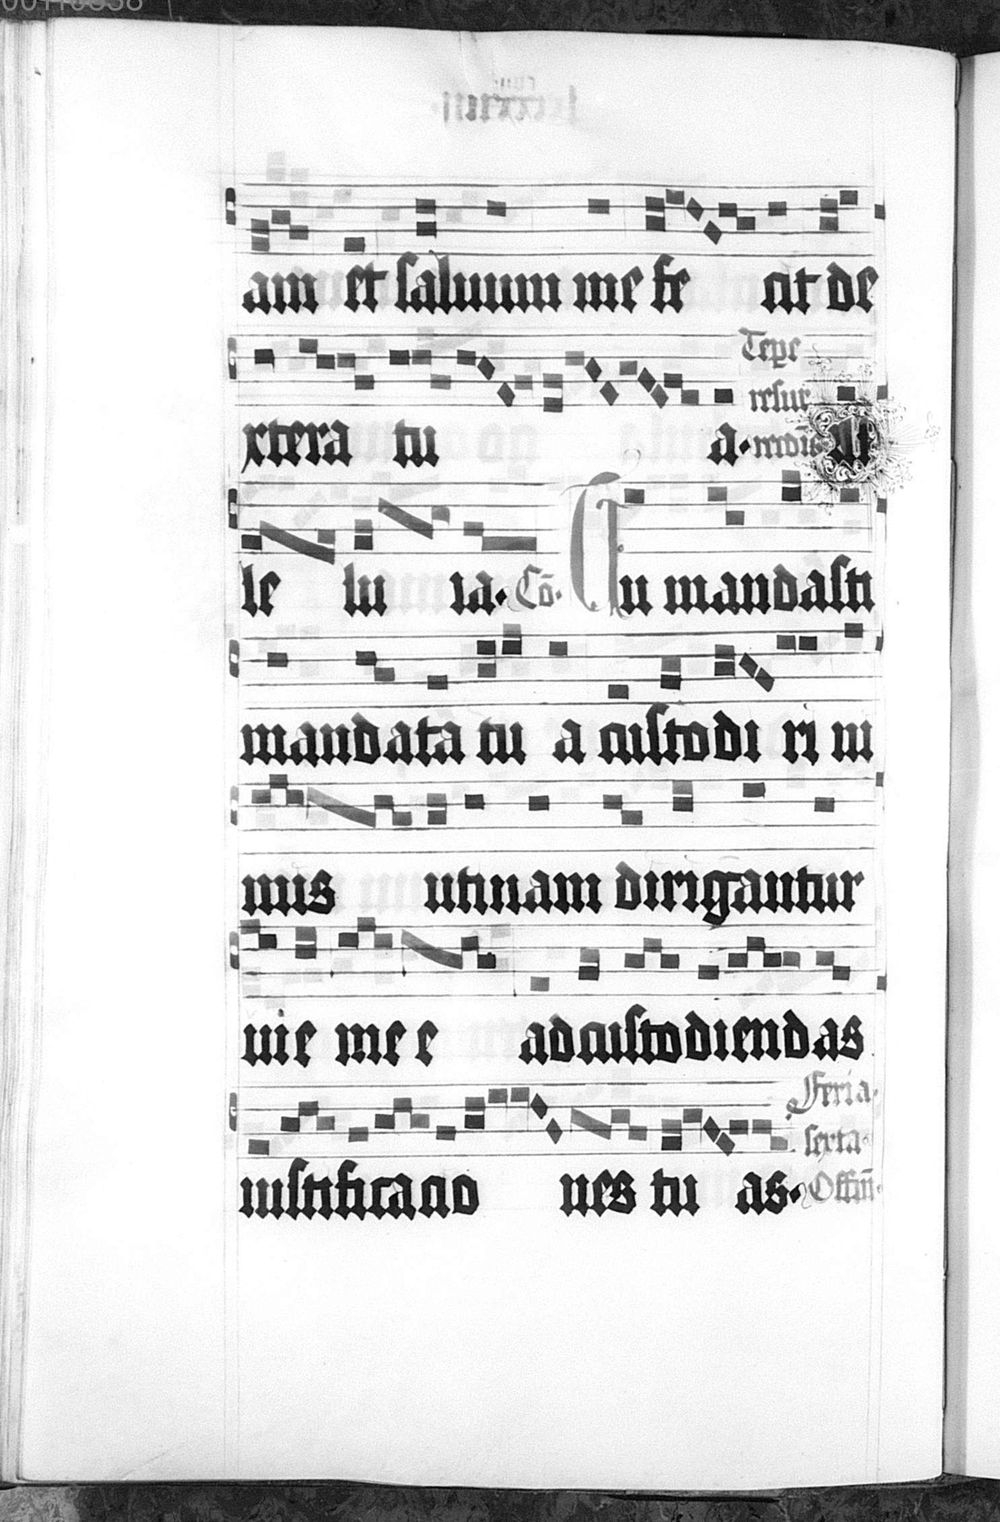 am et saluum me fe cit de
xtera tu a. Tempe resur recti. Al
le lu ia. Cō. Tu mandasti
mandata tu a custodi ri ni
mis utinam dirigantur
uie me e ad custodiendas
iustificatio nes tu as. Feria sexta Offm̄.